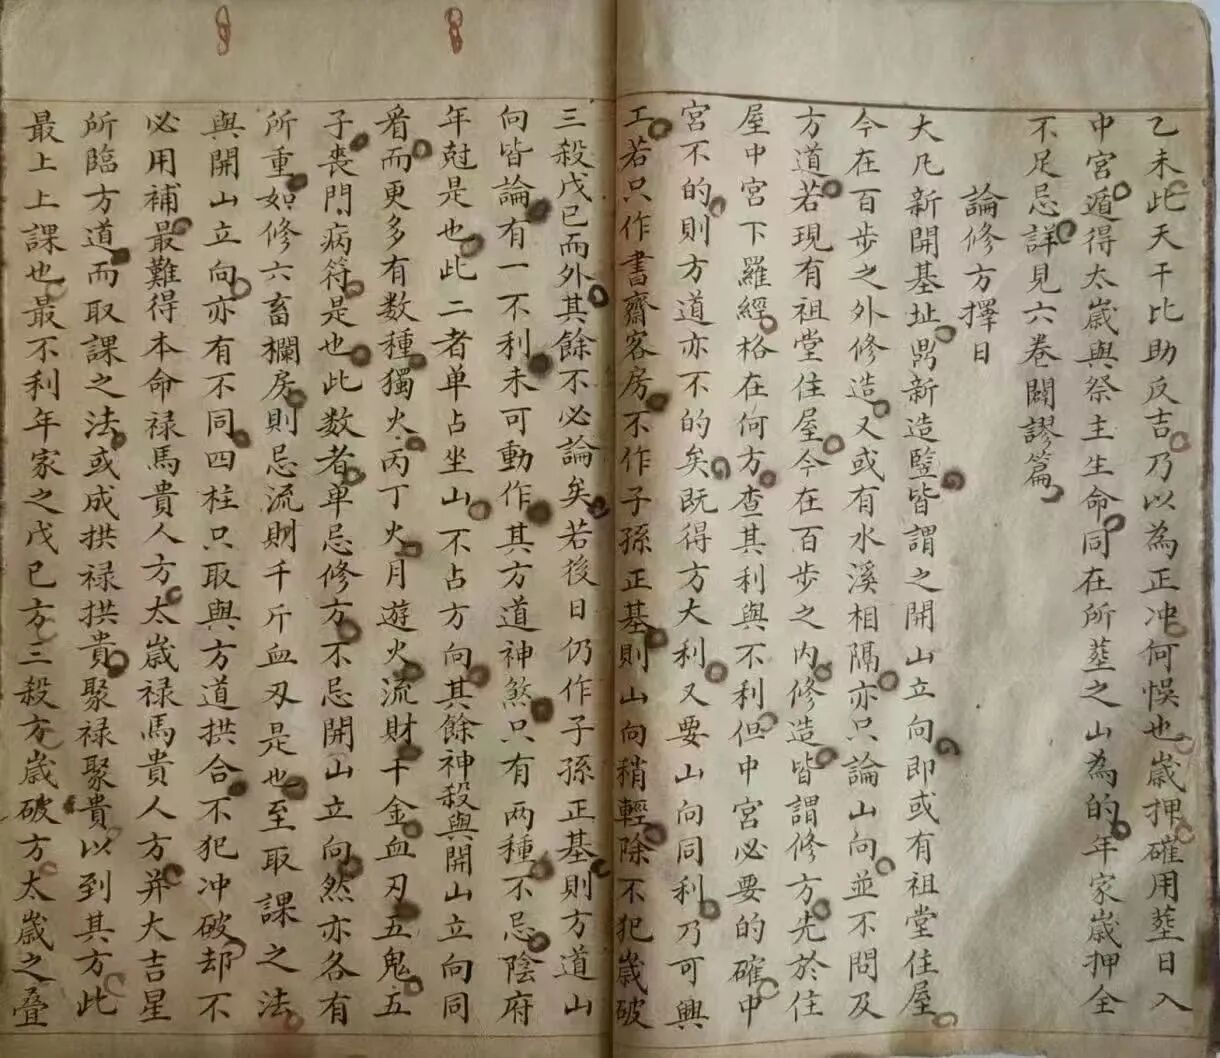 乙未此天干比助反吉乃以為正冲何悮也歲押確用塟日入
中宮遁得太歲與祭主生命同在所塟之山為的年家歲押全
不足忌詳見六卷闢謬篇
論修方擇日
大凡新開基址鼎新造豎皆謂之開山立向即或有祖堂住屋
今在百步之外修造又或有水溪相隔亦只論山向並不問及
方道若現有祖堂住屋今在百步之内修造皆謂修方先於住
屋中宮下羅經格在何方查其利與不利但中宮必要的確中
宮不的則方道亦不的矣既得方大利又要山向同利乃可興
工若只作書齋客房不作子孫正基則山向稍輕除不犯歲破
三殺戊己而外其餘不必論矣若後日仍作子孫正基則方道山
向皆論有一不利未可動作其方道神煞只有两種不忌陰府
年尅是也此二者单占坐山不占方向其餘神殺與開山立向同
看而更多有数種獨火丙丁火月遊火流財千金血刃五鬼五
子丧門病符是也此数者单忌修方不忌開山立向然亦各有
所重如修六畜欄房則忌流財千斤血刃是也至取課之法
與開山立向亦有不同四柱只取與方道拱合不犯冲破却不
必用補最難得本命禄馬貴人方太歲禄馬貴人方并大吉星
所臨方道而取課之法或成拱禄拱貴聚禄聚貴以到其方此
最上上課也最不利年家之戊己方三殺方歲破方太歲之叠